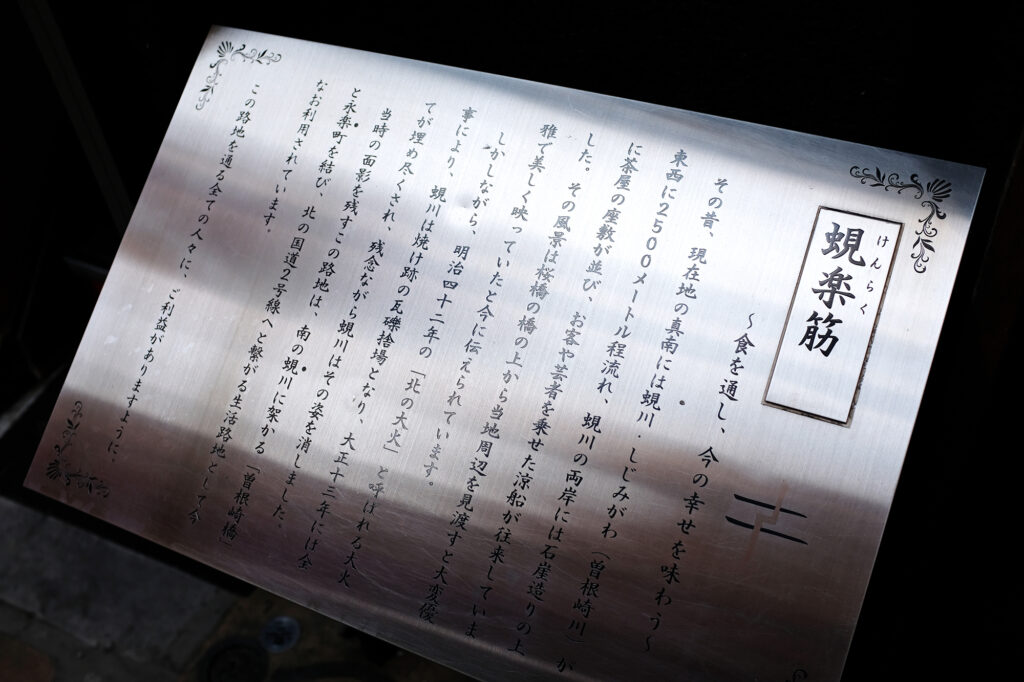 けんらく
蜆楽筋
〜食を通し、今の幸せを味わう〜
その昔、現在地の真南には蜆川・しじみがわ（曽根崎川）が
東西に2500メートル程流れ、蜆川の両岸には石崖造りの上
に茶屋の座敷が並び、お客や芸者を乗せた涼船が往来していま
した。その風景は桜橋の橋の上から当地周辺を見渡すと大変優
雅で美しく映っていたと今に伝えられています。
しかしながら、明治四十二年の「北の大火」と呼ばれる大火
事により、蜆川は焼け跡の瓦礫捨場となり、大正十三年には全
てが埋め尽くされ、残念ながら蜆川はその姿を消しました。
当時の面影を残すこの路地は、南の蜆川に架かる「曽根崎橋」
と永楽町を結び、北の国道2号線へと繋がる生活路地として今
なお利用されています。
この路地を通る全ての人々に、ご利益がありますように。